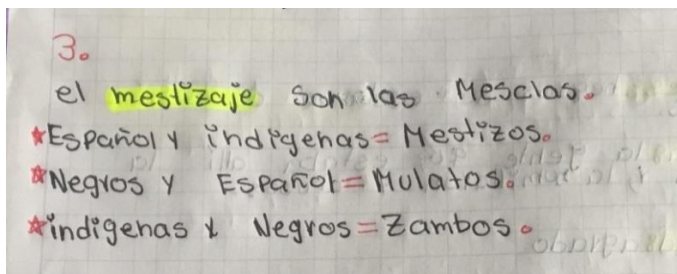 3.
el mestizaje son las Mesclas.
*Español y indigenas = Mestizos.
*Negros y Español = Mulatos.
*indigenas y Negros = Zambos.